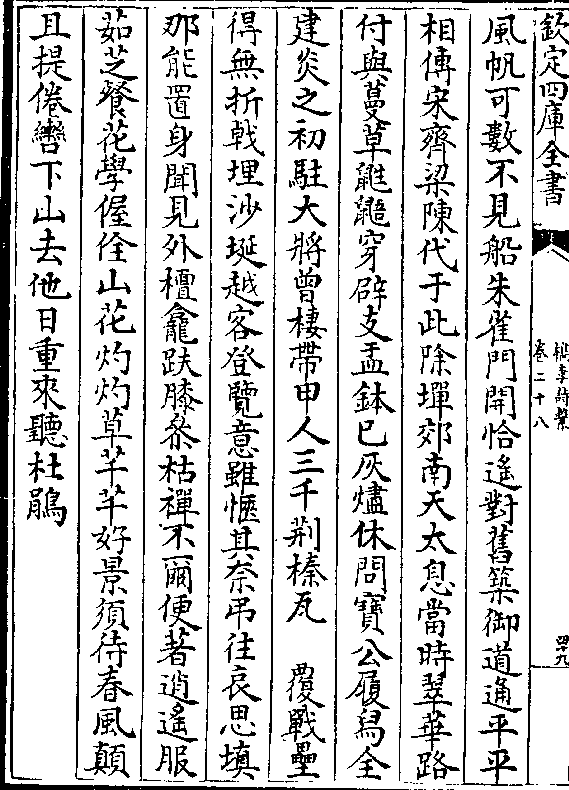 欽定四庫全書
樵李詩繫
卷二十八
四十九
風帆可數不見船朱雀門開恰遙對舊築御道通平平
相傳宋齊梁陳代于此除墠郊南天太息當時翠華路
付與蔓草鼪鼯穿辟支盂鉢已灰燼休問寶公履舄全
建炎之初駐大將曾棲帶甲人三千荆榛瓦 覆戰壘
得無折戟埋沙埏越客登覽意雖愜其奈弔往哀思填
那能置身聞見外檀龕趺膝叅枯禪不爾便著逍遙服
茹芝餐花學偓佺山花灼灼草芊芊好景須待春風顛
且提倦轡下山去他日重來聽杜鵑